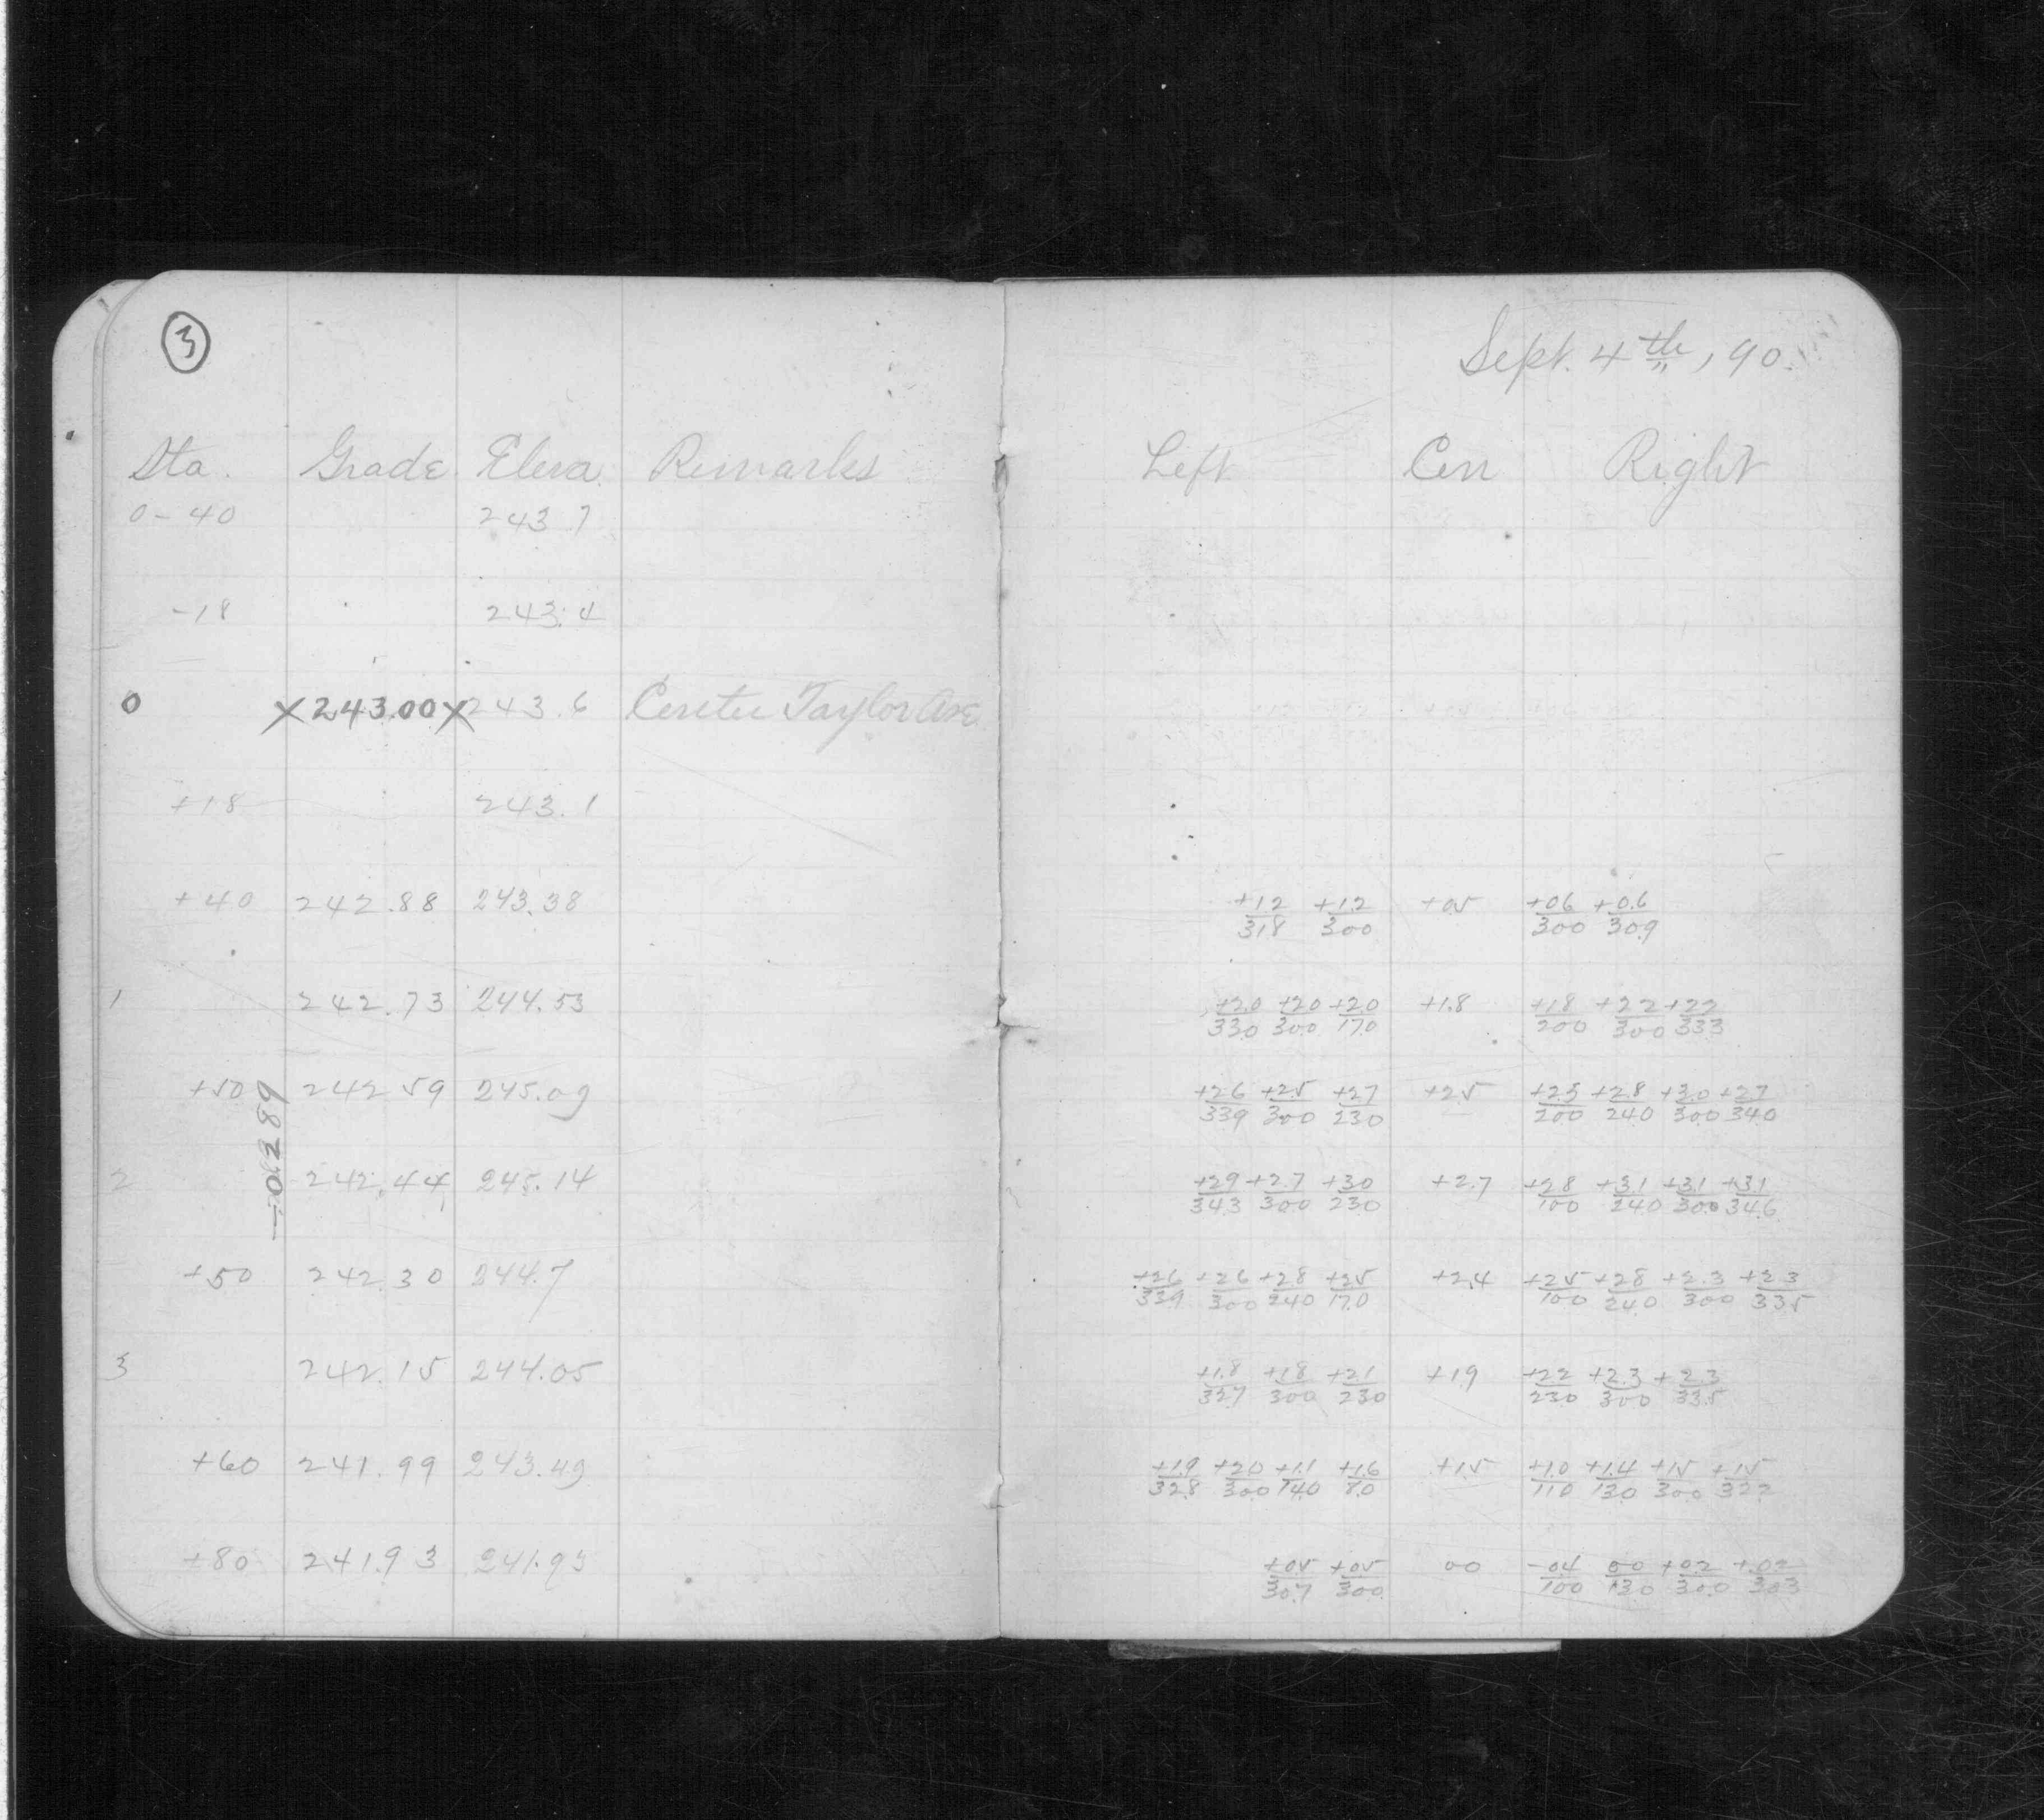 3
Sept. 4th, 90.
Sta. Grade. Eleva. Remarks
Left Cen Right
0-40 243.7
-18 243.4
0 X 243.00 X 243.6 Center Taylor Ave.
+18 243.1
+40 242.88 243.38
+1.2/31.8 +1.2/30.0 +0.5 +0.6/30.0 +0.6/30.9
1 242.73 244.53
+2.0/33.0 +2.0/30.0 +2.0/17.0 +1.8 +1.8/20.0 +2.2/30.0 +2.2/33.3
+50 242.59 245.09
+2.6/33.9 +2.5/30.0 +2.7/23.0 +2.5 +2.5/20.0 +2.8/24.0 +3.0/30.0 +2.7/34.0
-0.289
2 242.44 245.14
+2.9/34.3 +2.7/30.0 +3.0/23.0 +2.7 +2.8/10.0 +3.1/24.0 +3.1/30.0 +3.1/34.6
+50 242.30 244.7
+2.6/33.9 +2.6/30.0 +2.8/24.0 +2.5/17.0 +2.4 +2.5/10.0 +2.8/24.0 +2.3/30.0 +2.3/33.5
3 242.15 244.05
+1.8/32.7 +1.8/30.0 +2.1/23.0 +1.9 +2.2/23.0 +2.3/30.0 +2.3/33.5
+60 241.99 243.49
+1.9/32.8 +2.0/30.0 +1.1/14.0 +1.6/8.0 +1.5 +1.0/11.0 +1.4/13.0 +1.5/30.0 +1.5/32.2
+80 241.93 241.93
+0.5/30.7 +0.5/30.0 0.0 -0.4/10.0 0.0/13.0 +0.2/30.0 +0.2/30.3